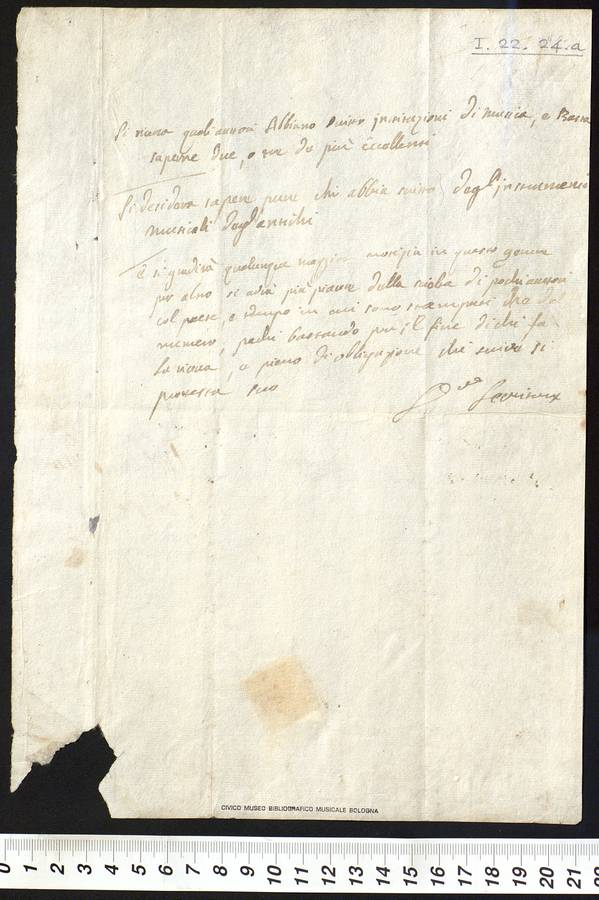 I. 22. 24. a
Si cerca quali autori Abbiano scritto institutioni di musica, e Basta
sapere due, o tre de più eccellenti
Si desidera sapere pure chi abbia scritto degl'instrumenti
musicali degl'antichi
E si gradirà qualunque notizia in questo genere
per altro si avrà più piacere della scielta di pochi autori
col paese, e tempo in cui sono stampati che del
numero, poichi bastando per il fine di chi fa
la ricerca, e pieno di obligazione chi scrive si
protesta suo
CIVICO MUSEO BIBLIOGRAFICO MUSICALE BOLOGNA
0 1 2 3 4 5 6 7 8 9 10 11 12 13 14 15 16 17 18 19 20 21 22